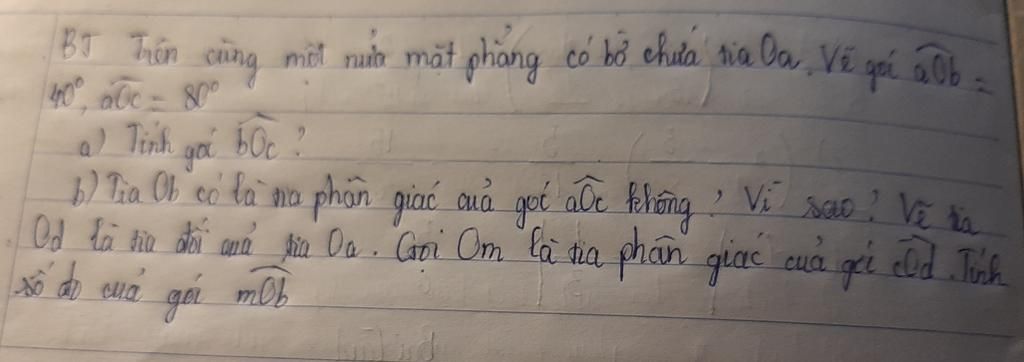 BT Trên cùng một nửa mặt phẳng có bờ chứa tia Oa. Vẽ gói aOb =
40°, aOc = 80°
a) Tính gói bOc?
b) Tia Ob có là tia phân giác của góc aOc không? Vì sao? Vẽ tia
Od là tia đối của tia Oa. Gọi Om là tia phân giác của gói cOd. Tính
số đo của gói mOb